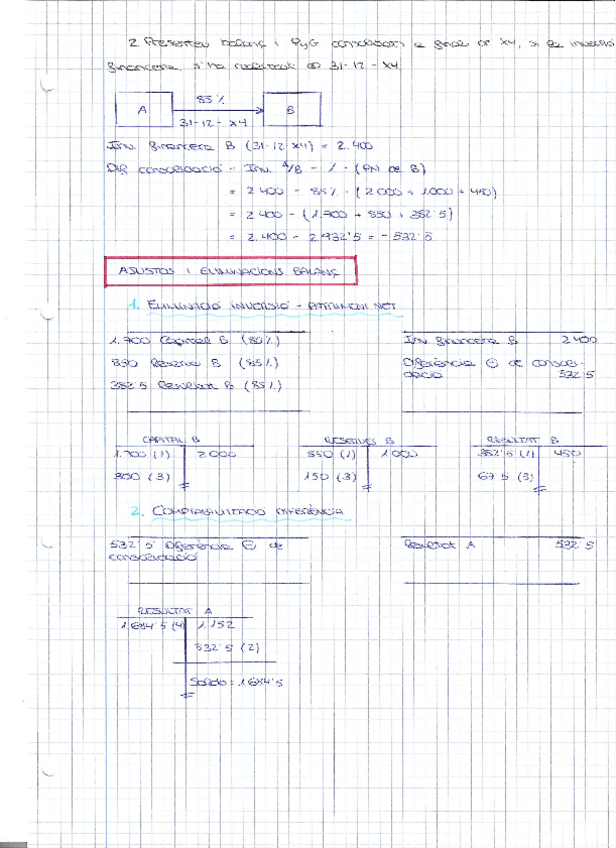 2. Presenteu balanç i PyG consolidat a final de X4, si la inversió
financera s'ha realitzat el 31-12-X4
A 85% B
31-12-X4
Inv. financera B (31-12-X4) = 2.400
Dif consolidació = Inv. A/B - % · (PN de B)
= 2.400 - 85% · (2.000 + 1.000 + 450)
= 2.400 - (1.700 + 850 + 382'5)
= 2.400 - 2.932'5 = - 532'5
AJUSTOS I ELIMINACIONS BALANÇ
1. ELIMINACIÓ INVERSIÓ - PATRIMONI NET
1.700 Capital B (85%) Inv financera B 2.400
850 Reserva B (85%) Diferència ⊖ de consoli-
dació 532'5
382'5 Resultat B (85%)
CAPITAL B RESERVES B RESULTAT B
1.700 (1) 2.000 850 (1) 1.000 382'5 (1) 450
300 (3) 150 (3) 67'5 (3)
2. COMPTABILITZACIÓ DIFERÈNCIA
532'5 Diferència ⊖ de Resultat A 532'5
consolidació
RESULTAT A
1.684'5 (4) 1.152
532'5 (2)
Saldo = 1684'5